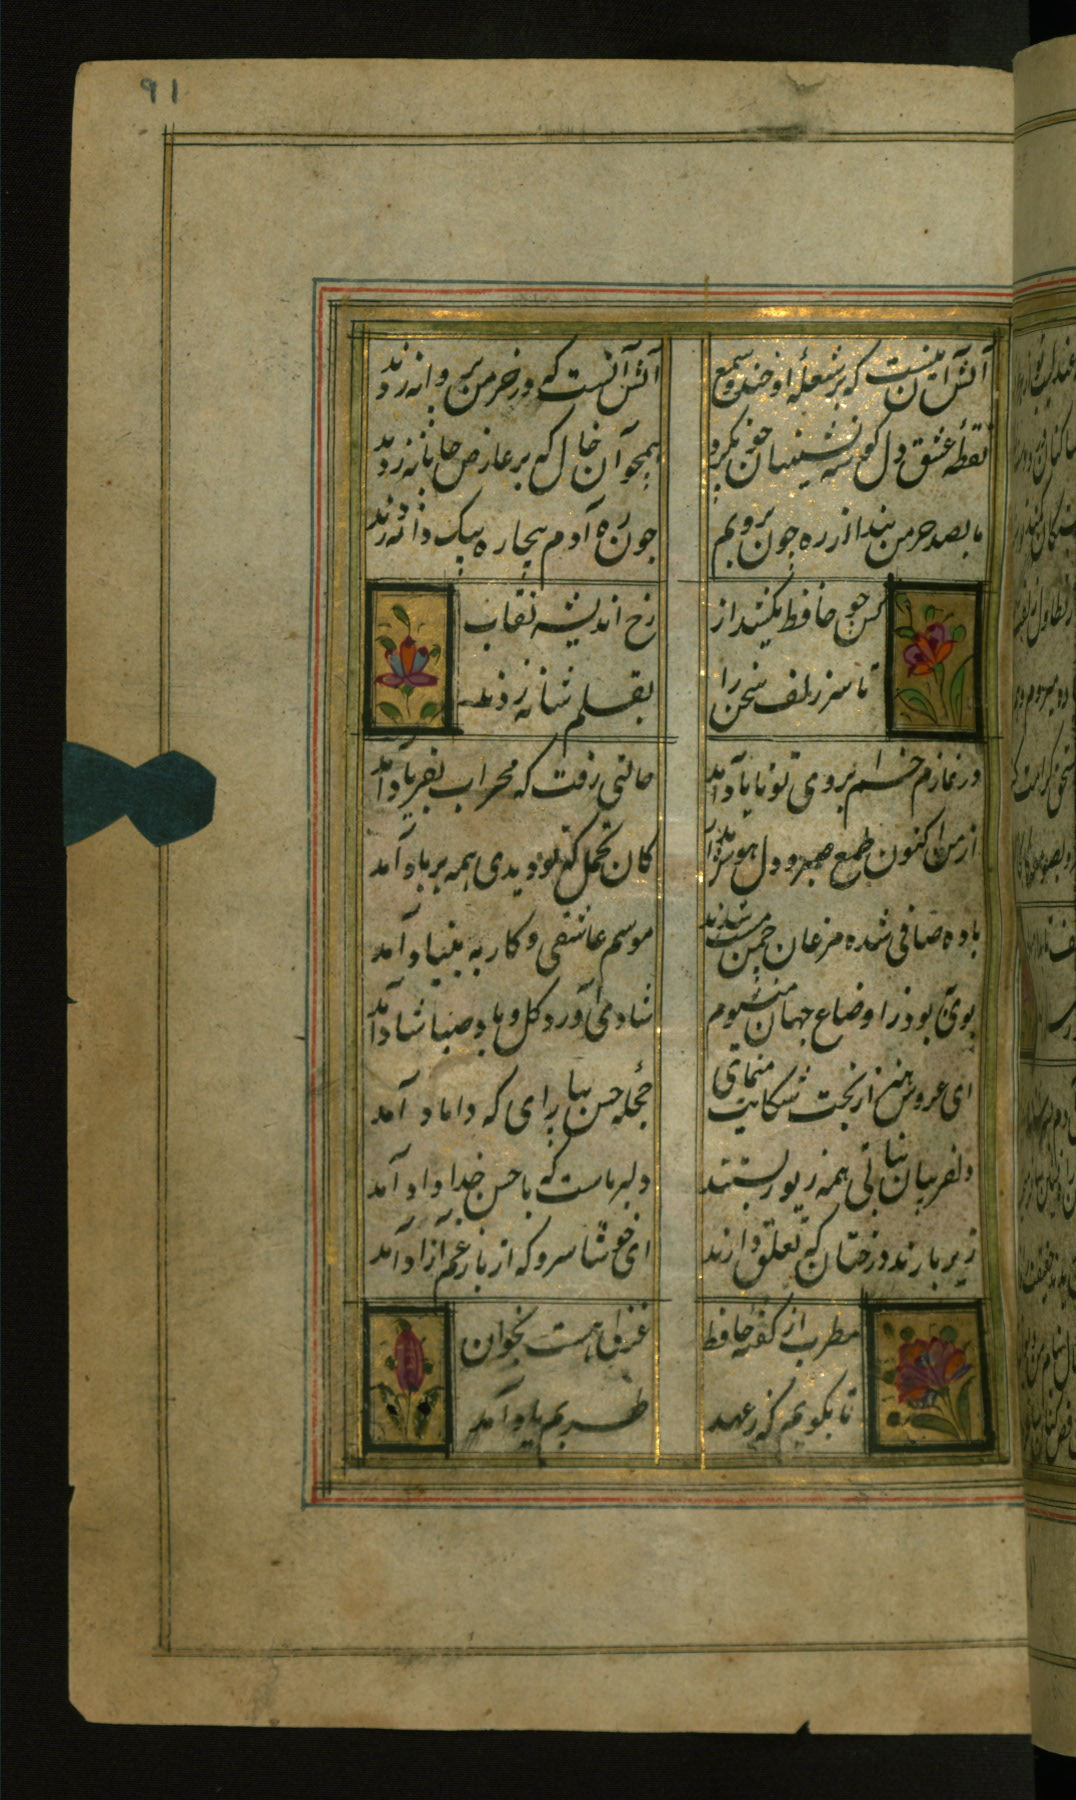 ۹۱
آتش آن نیست که بر شعلهٔ او خندد شمع
آتش آنست که در خرمن پروانه زدند
نقطهٔ عشق دل گوشه نشینان خون کرد
همچو آن خال که بر عارض جانانه زدند
ما بصد خرمن پندار ز ره چون نرویم
چون ره آدم بیچاره بیک دانه زدند
کس چو حافظ نکشید از
رخ اندیشه نقاب
تا سر زلف سخن را
بقلم شانه زدند
در نمازم خم ابروی تو با یاد آمد
حالتی رفت که محراب بفریاد آمد
از من اکنون طمع صبر و دل هوش مدار
کان تحمل که تو دیدی همه بر باد آمد
باده صافی شده مرغان چمن مست شدند
موسم عاشقی و کار به بنیاد آمد
بوی بهبود ز اوضاع جهان میشنوم
شادی آورد گل و باد صبا شاد آمد
ای عروس هنر از بخت شکایت منمای
حجله حسن بیارای که داماد آمد
دلفریبان نباتی همه زیور بستند
دلبر ماست که با حسن خدا داد آمد
زیر بارند درختان که تعلق دارند
ای خوشا سرو که از بار غم آزاد آمد
مطرب از گفته حافظ
غزلی هست بخوان
تا بگویم که ز عهد
طربم یاد آمد